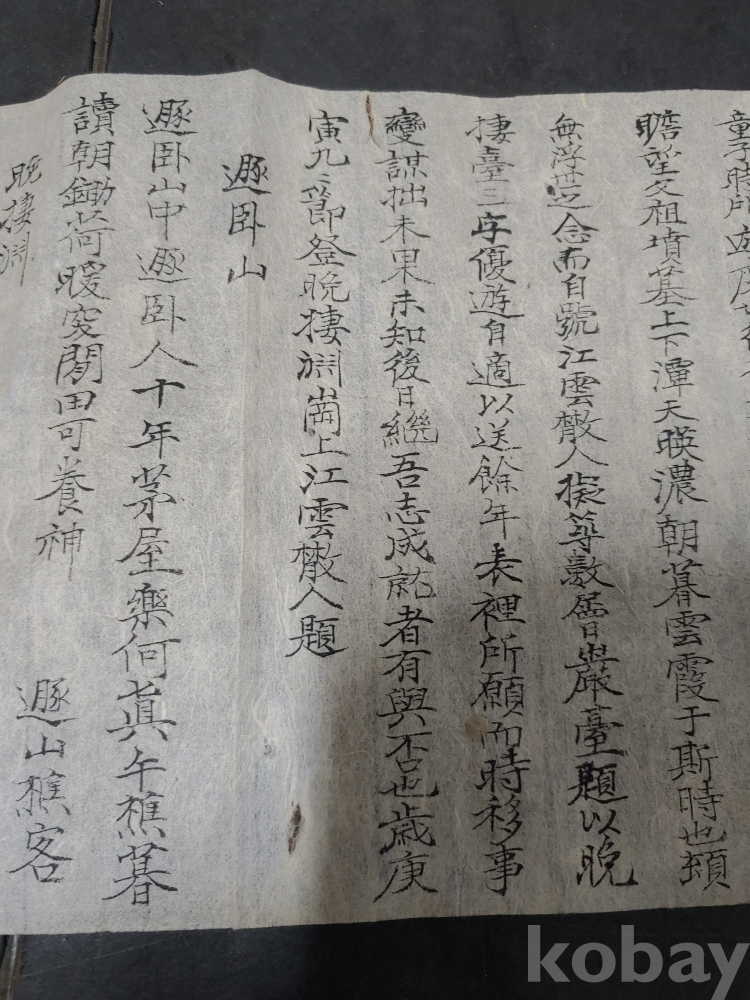 童子時所遊
瞻望父祖墳墓上下潭天暎濃朝暮雲霞于斯時也頓
無浮世之念而自號江雲散人擬筭數層巖臺題以晩
捿臺三字優遊自適以送餘年表裡所願而時移事
變謀拙未果未知後日繼吾志成就者有與否也歲庚
寅九之節登晩捿淵崗上江雲散人題
遯卧山
遯卧山中遯卧人十年茅屋樂何眞午樵暮
讀朝鋤荷暖突閒田可養神
遯山樵客
晩捿淵
kobay